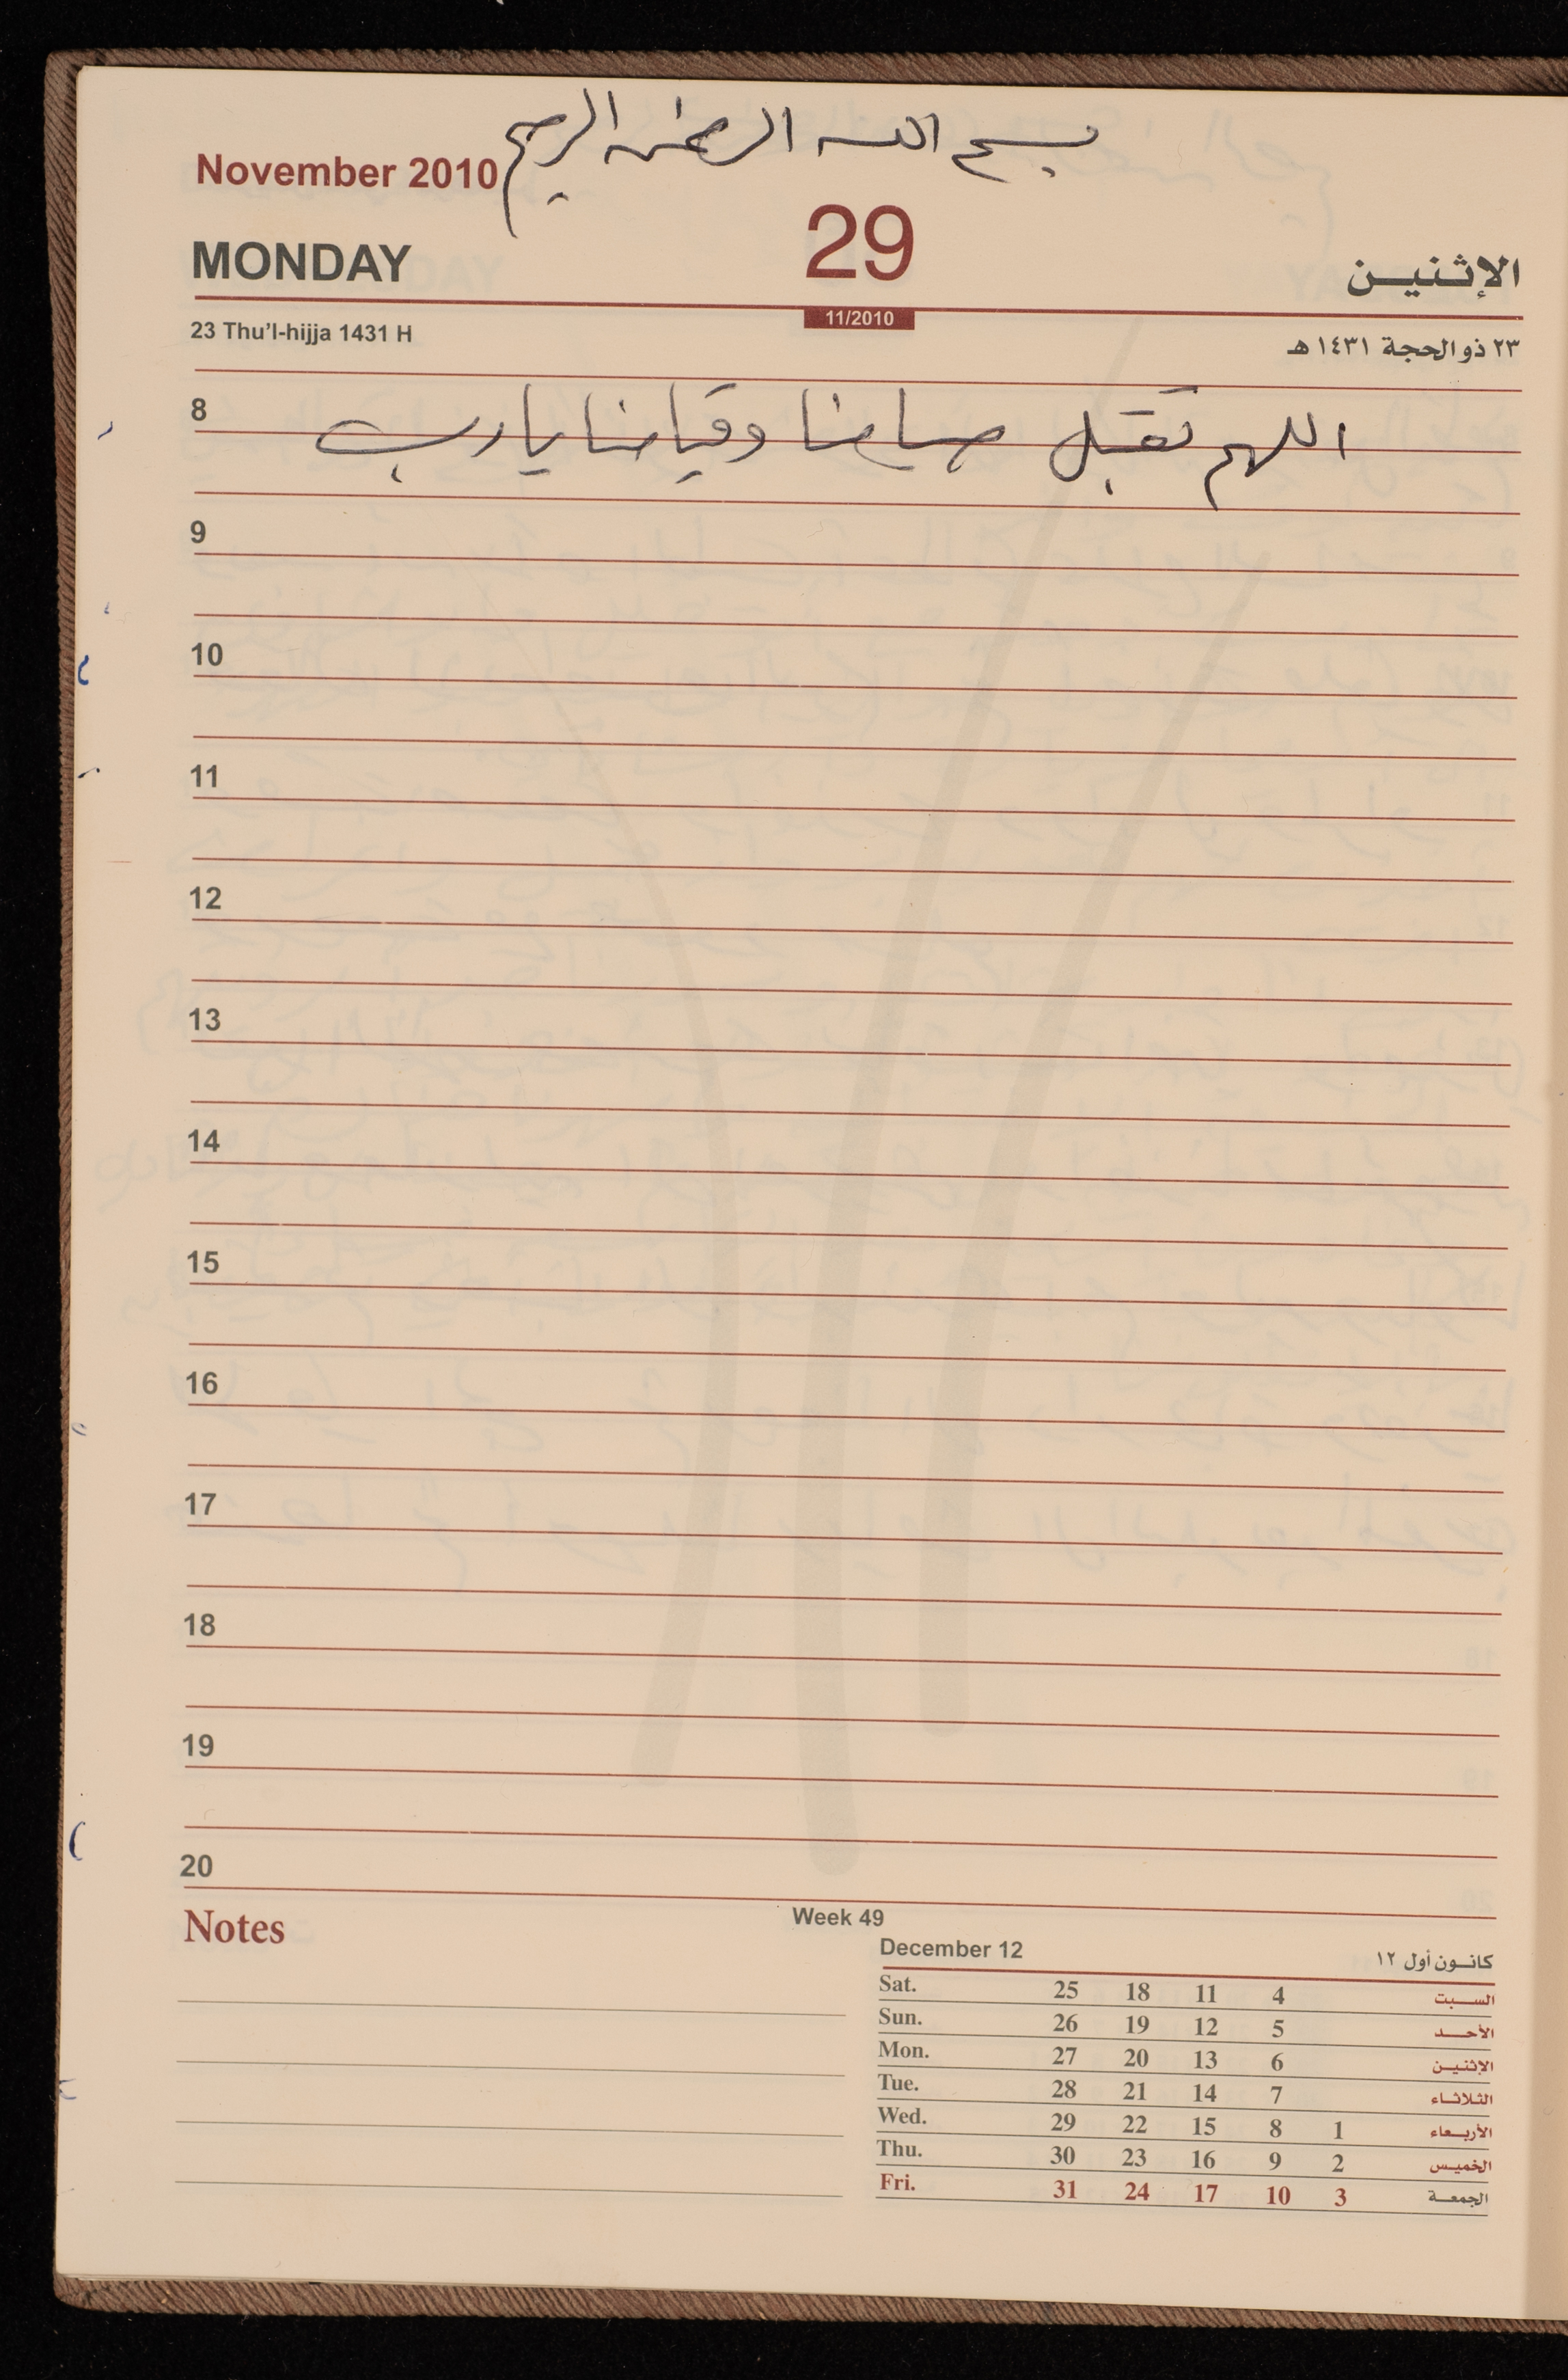 بسم الله الرحمن الرحيم
November 2010
MONDAY 29 الإثنين
23 Thu'l-hijja 1431 H 11/2010 ٢٣ ذو الحجة ١٤٣١ هـ
8 اللهم تقبل صيامنا وقيامنا يا رب
9
10
11
12
13
14
15
16
17
18
19
20
Notes Week 49
December 12 كانون أول ١٢
Sat. 25 18 11 4 السبت
Sun. 26 19 12 5 الأحد
Mon. 27 20 13 6 الإثنين
Tue. 28 21 14 7 الثلاثاء
Wed. 29 22 15 8 1 الأربعاء
Thu. 30 23 16 9 2 الخميس
Fri. 31 24 17 10 3 الجمعة